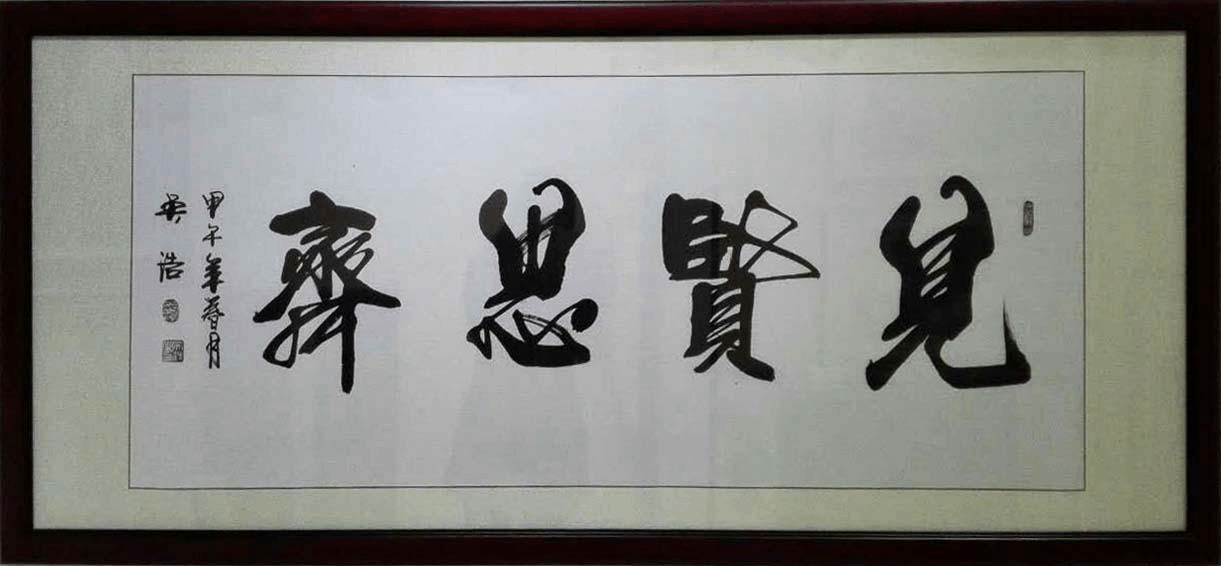 見賢思齊
甲午年春月
吳浩